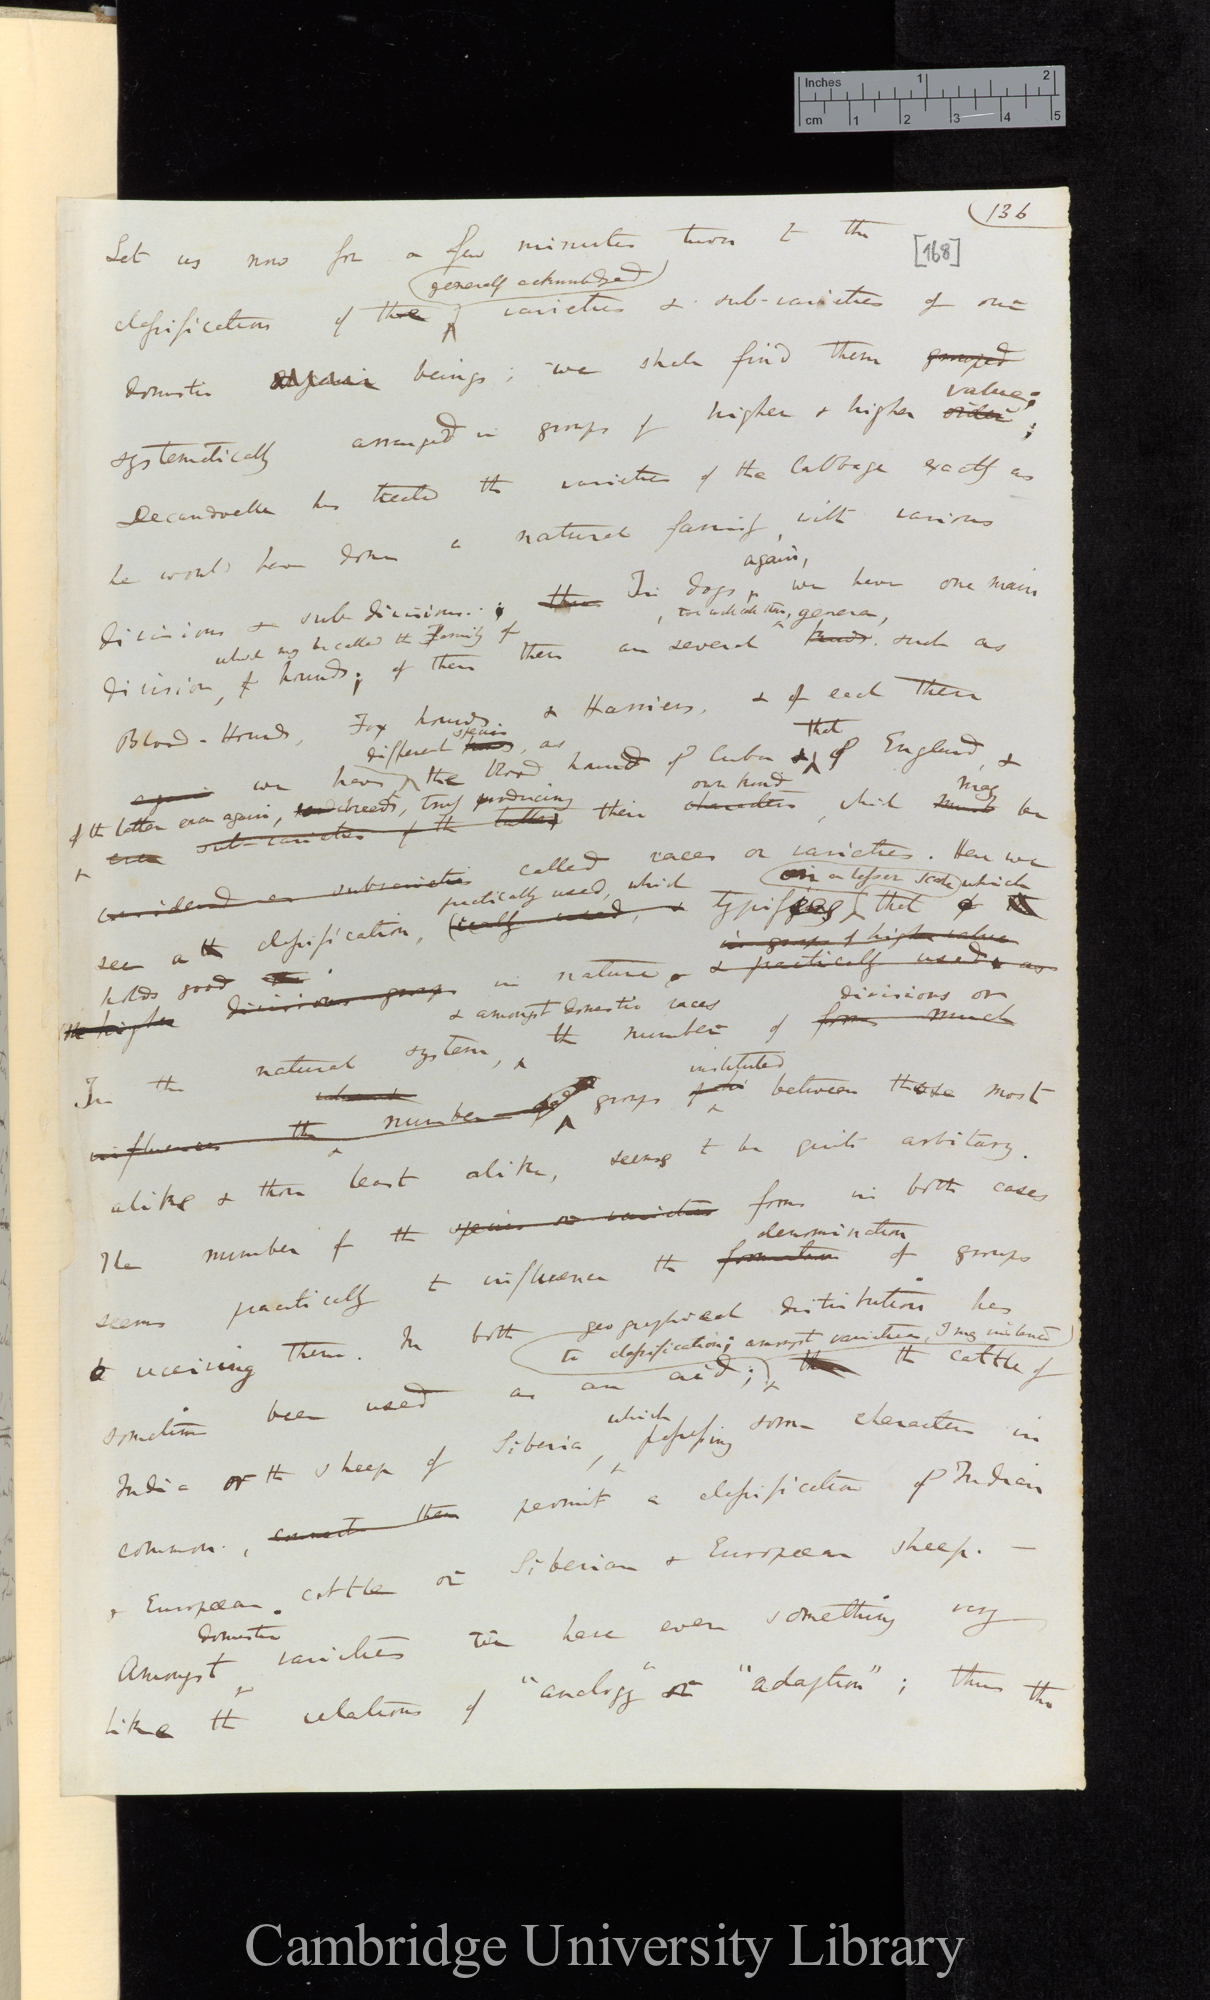 136
[168]
Let us now for a few minutes turn to the
generally acknowledged
classification of the varieties & sub-varieties of our
domestic organic beings; we shall find them grouped
value;
systematically arranged in groups of higher & higher order;
Decandoelle has treated the varieties of the Cabbage exactly as
he would have done a natural family, with various
again,
divisions & sub divisions.; In dogs, we have one main
which may be called the Family of
genera,
division, of hounds; of them there are several kinds. such as
Blood-Hounds, Fox hounds & Harriers, & of each there
different species, as
that
again we have the blood hound of Cuba & of England, &
of the latter even again, breeds, truly producing
own kind
may
& even sub-varieties of the latter their characters, which must be
considered as subvarieties called races or varieties. Here we
practically used, which
on a lesser scale which
see a classification, really used, & typifies that
in groups of higher value
holds good
the higher divisions groups in nature. & practically used, as
& amongst domestic races
divisions or
In the natural system, the number of forms much
instituted
influences the number groups between those most
alike & those least alike, seems to be quite arbitary.
The number of the species or varieties forms in both cases
denomination
seems practically to influence the formation of groups
receiving them. In both geographical distribution has
to classification; amongst varieties, I may instance
sometime been used as an aid; & the the cattle of
which
India or the sheep of Siberia, possessing some characters in
common., connects them permit a classification of Indian
& European cattle or Siberian & European sheep. —
domestic
Amongst varieties we have even something very
like the relations of "analogy" or "adaption"; thus the
Inches 1 2
cm 1 2 3 4 5
Cambridge University Library